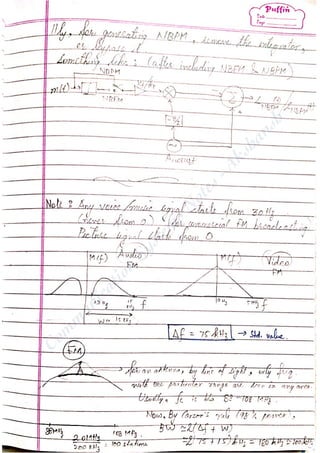 Puffin
Date
Page
Illy. for generating NBPM, remove the integrator,
or bypass it
Something like : (after including NBFM & NBPM)
NBPM
m(t)
NBFM
Σ
-90°
Acosωct
Note : Any voice/music signal starts from 30 Hz
(never from 0) for commercial FM broadcasting.
Picture signal starts from 0
M(f) Audio FM
M(f) Video FM
f
15 kHz
f
W = 15 kHz
Δf = 75 kHz → Std. value.
FM
→ for an antenna, by line of sight, only freq.
with one particular range are seen in any area.
Usually, fc is b/w 88-108 MHz.
Now, By Carson's rule (98% power),
BW ≃ 2(Δf + W)
88 MHz 108 MHz
20 MHz / 200 kHz = 100 stations
≃ 2(75 + 15) kHz = 180 kHz ≃ 200 kHz